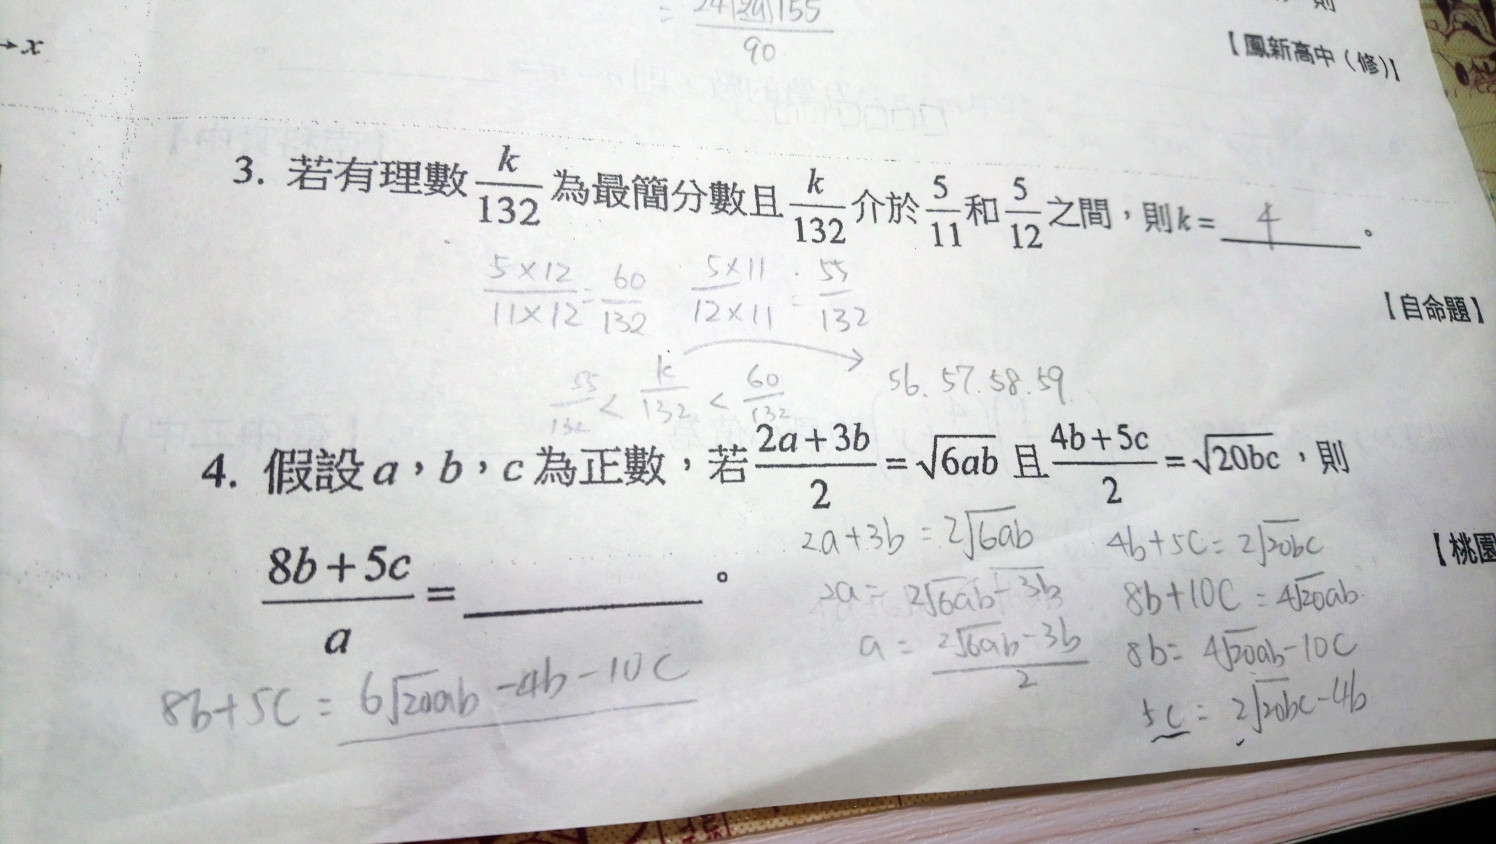 = \frac{24|2a|155}{90}
則
【鳳新高中(修)】
→x
3. 若有理數 \frac{k}{132} 為最簡分數且 \frac{k}{132} 介於 \frac{5}{11} 和 \frac{5}{12} 之間，則k= 4 。
\frac{5×12}{11×12} = \frac{60}{132} \frac{5×11}{12×11} = \frac{55}{132}
【自命題】
\frac{55}{132} < \frac{k}{132} < \frac{60}{132} → 56. 57. 58. 59.
4. 假設a，b，c為正數，若 \frac{2a+3b}{2} = \sqrt{6ab} 且 \frac{4b+5c}{2} = \sqrt{20bc}，則
\frac{8b+5c}{a} = ______ 。
【桃園
2a+3b = 2\sqrt{6ab}
2a = 2\sqrt{6ab}-3b
a = \frac{2\sqrt{6ab}-3b}{2}
4b+5c = 2\sqrt{20bc}
8b+10c = 4\sqrt{20ab}
8b = 4\sqrt{20ab}-10c
5c = 2\sqrt{20bc}-4b
8b+5c = 6\sqrt{20ab}-4b-10c